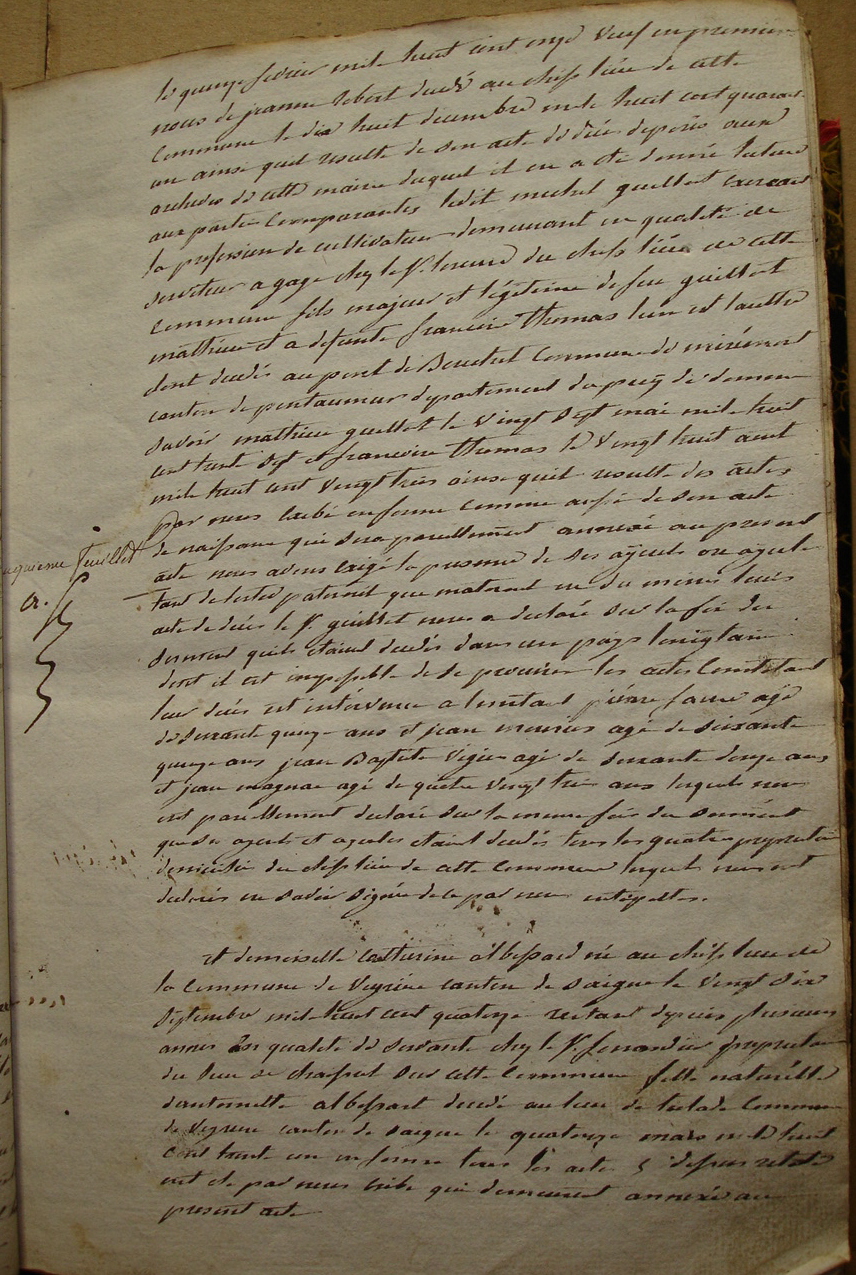 le quinze fevrier mil huit cent onze veuf en premier
noces de jeanne robert decedé au chef lieu de cette
Commune le dix huit decembre mil huit cent quarante
un ainsi quil resulte de son acte de décès deposés aux
archives de cette mairie duquel il en a eté donné lecture
aux partie Comparantes ledit michel guillot exercant
la profession de cultivateur demeurant en qualité de
serviteur a gage chez le Sr. du chef lieu de cette
Commune fils majeur et légitime de feu guillot
mathieu et a defunte francoise thomas lun et lautre
dont decedés au pont de Bouchet Commune de mirémont
canton de pontaumur departement du puy de dome
savoir mathieu guillot le vingt sept mai mil huit
cent trente sept et francoise thomas le vingt huit aout
mil huit cent vingt trois ainsi quil resulte des actes
par nous exibé en forme comme aussi de son acte
de naissance qui sera pareillement annexé au present
acte nous avons exigé la presence de ses ayeuls ou ayeules
tant du coté paternel que maternel ou du moins leurs
acte de décès le Sr guillot nous a declaré sur la foi du
serment quils etaient decedés dans un pays lointain
dont il est impossible de se procurer les actes Constatant
leur décès est intervenu a linstant pierre faure agé
de soixante quinze ans et jean meunier agé de soixante
quinze ans jean Baptiste vigier agé de soixante douze ans
et jean magnac agé de quatre vingt trois ans lesquels nous
ont pareillement declaré sur la meme foi du serment
que ses ayeuls et ayeules etaient decedés tous les quatre propriétaires
domicilié du chef lieu de cette Commune lesquels nous ont
declarés ne savoir signé de ce par nous interpellés.
feuillet
et demoiselle catherine albessard née au chef lieu de
la Commune de Veyrière canton de saigne le vingt six
Septembre mil huit cent quatorze restant depuis plusieurs
annés En qualité de servante chez le Sr. propriétaire
du lieu de sur cette Commune fille naturélle
dantoinette albessart decedé au lieu de Commune
de Veyriere canton de saigne le quatorze mars mil huit
Cent trente un en forme tous les actes ci dessus relatés
ont eté par nous exibé qui demeurent annexés au
present acte